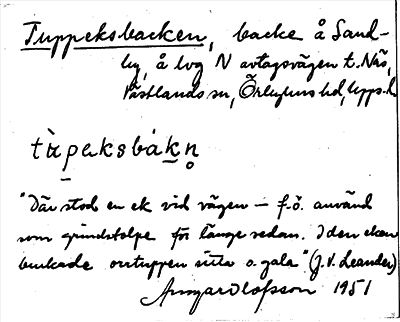 Tuppeksbacken, backe å Sand-
by, å lvg N avtagsvägen t. Näs,
Västlands sn, Örbyhus hd, Upps. l.
tùpeksbàkn̥
"Där stod en ek vid vägen – f.ö. använd
som grindstolpe för länge sedan. I den eken
brukade orrtuppen sitta o. gala" (J.V. Leander)
Olofsson 1951